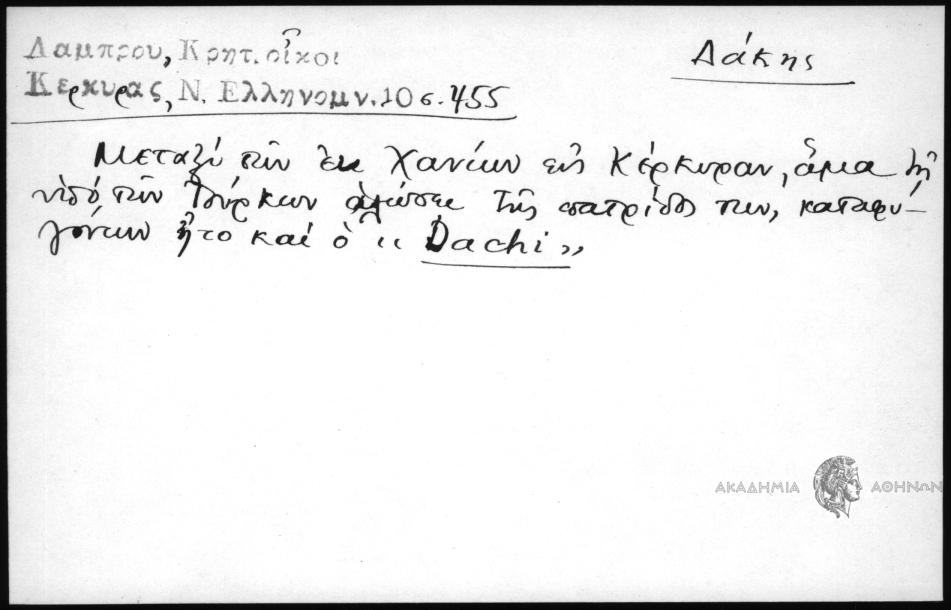 Λαμπρου, Κρητ. οἶκοι
Κερκυρας, Ν. Ελληνομν. 10 σ. 455
Δάκης
Μεταξύ τῶν ἐκ Χανίων εἰς Κέρκυραν, ἅμα τῇ
ὑπό τῶν Τούρκων ἁλώσει τῆς πατρίδος των, καταφυ-
γόντων ἦτο καί ὁ „ Dachi „
ΑΚΑΔΗΜΙΑ ΑΘΗΝΩΝ